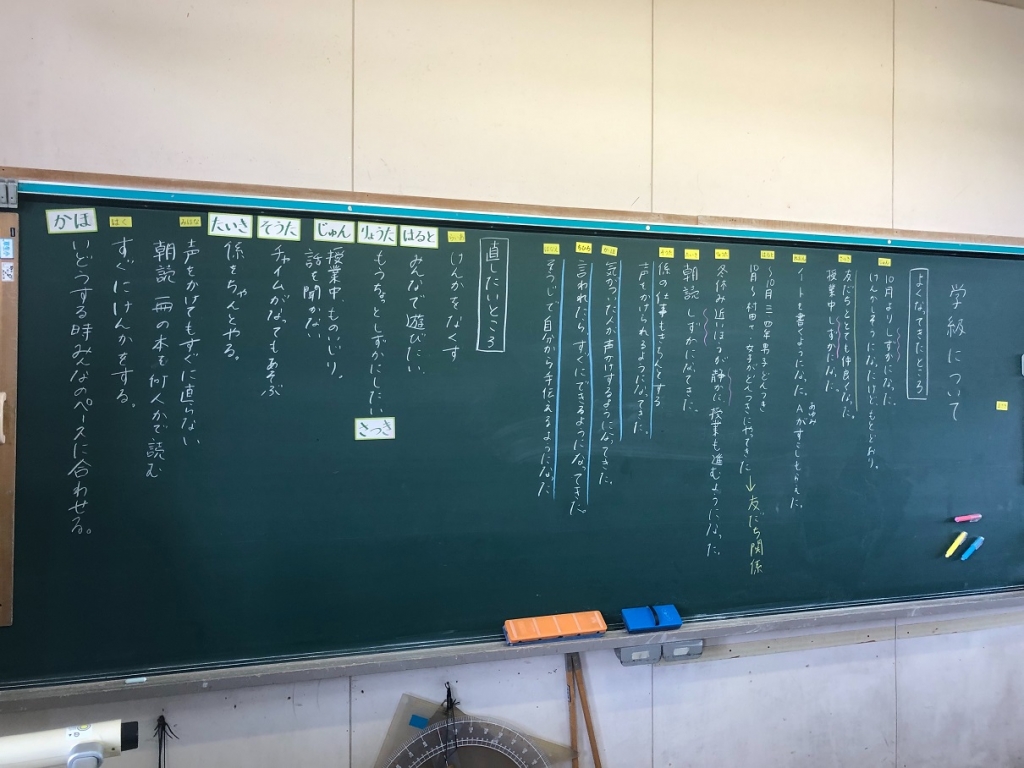 学級について
よくなってきたところ
10月よりしずかになった
けんかしなくなったけどもとどおり。
友だちととても仲良くなった
授業中しずかになった。
ノートも書くようになった。
10月〜 → 友だち関係
冬休み近いほうが静かに授業も進むようになった
朝読 しずかになってきた。
係の仕事もきちんとする
声もかけられるようになってきた
気がついた人が声かけするようになってきた。
言われたらすぐにできるようになってきた
そうじで自分から手伝えるようになった
直したいところ
けんかをなくす
はると
みんなで遊びたい
りょうた
もうちょっとしずかにしたい
さつき
じゅん
授業中、ものいじり。
話を聞かない
そうた
チャイムがなってもあそぶ
たいき
係をちゃんとやる。
みはな
声をかけてもすぐに直らない
朝読 一冊の本を何人かで読む
はく
すぐにけんかをする。
かほ
いどうする時みんなのペースに合わせる。